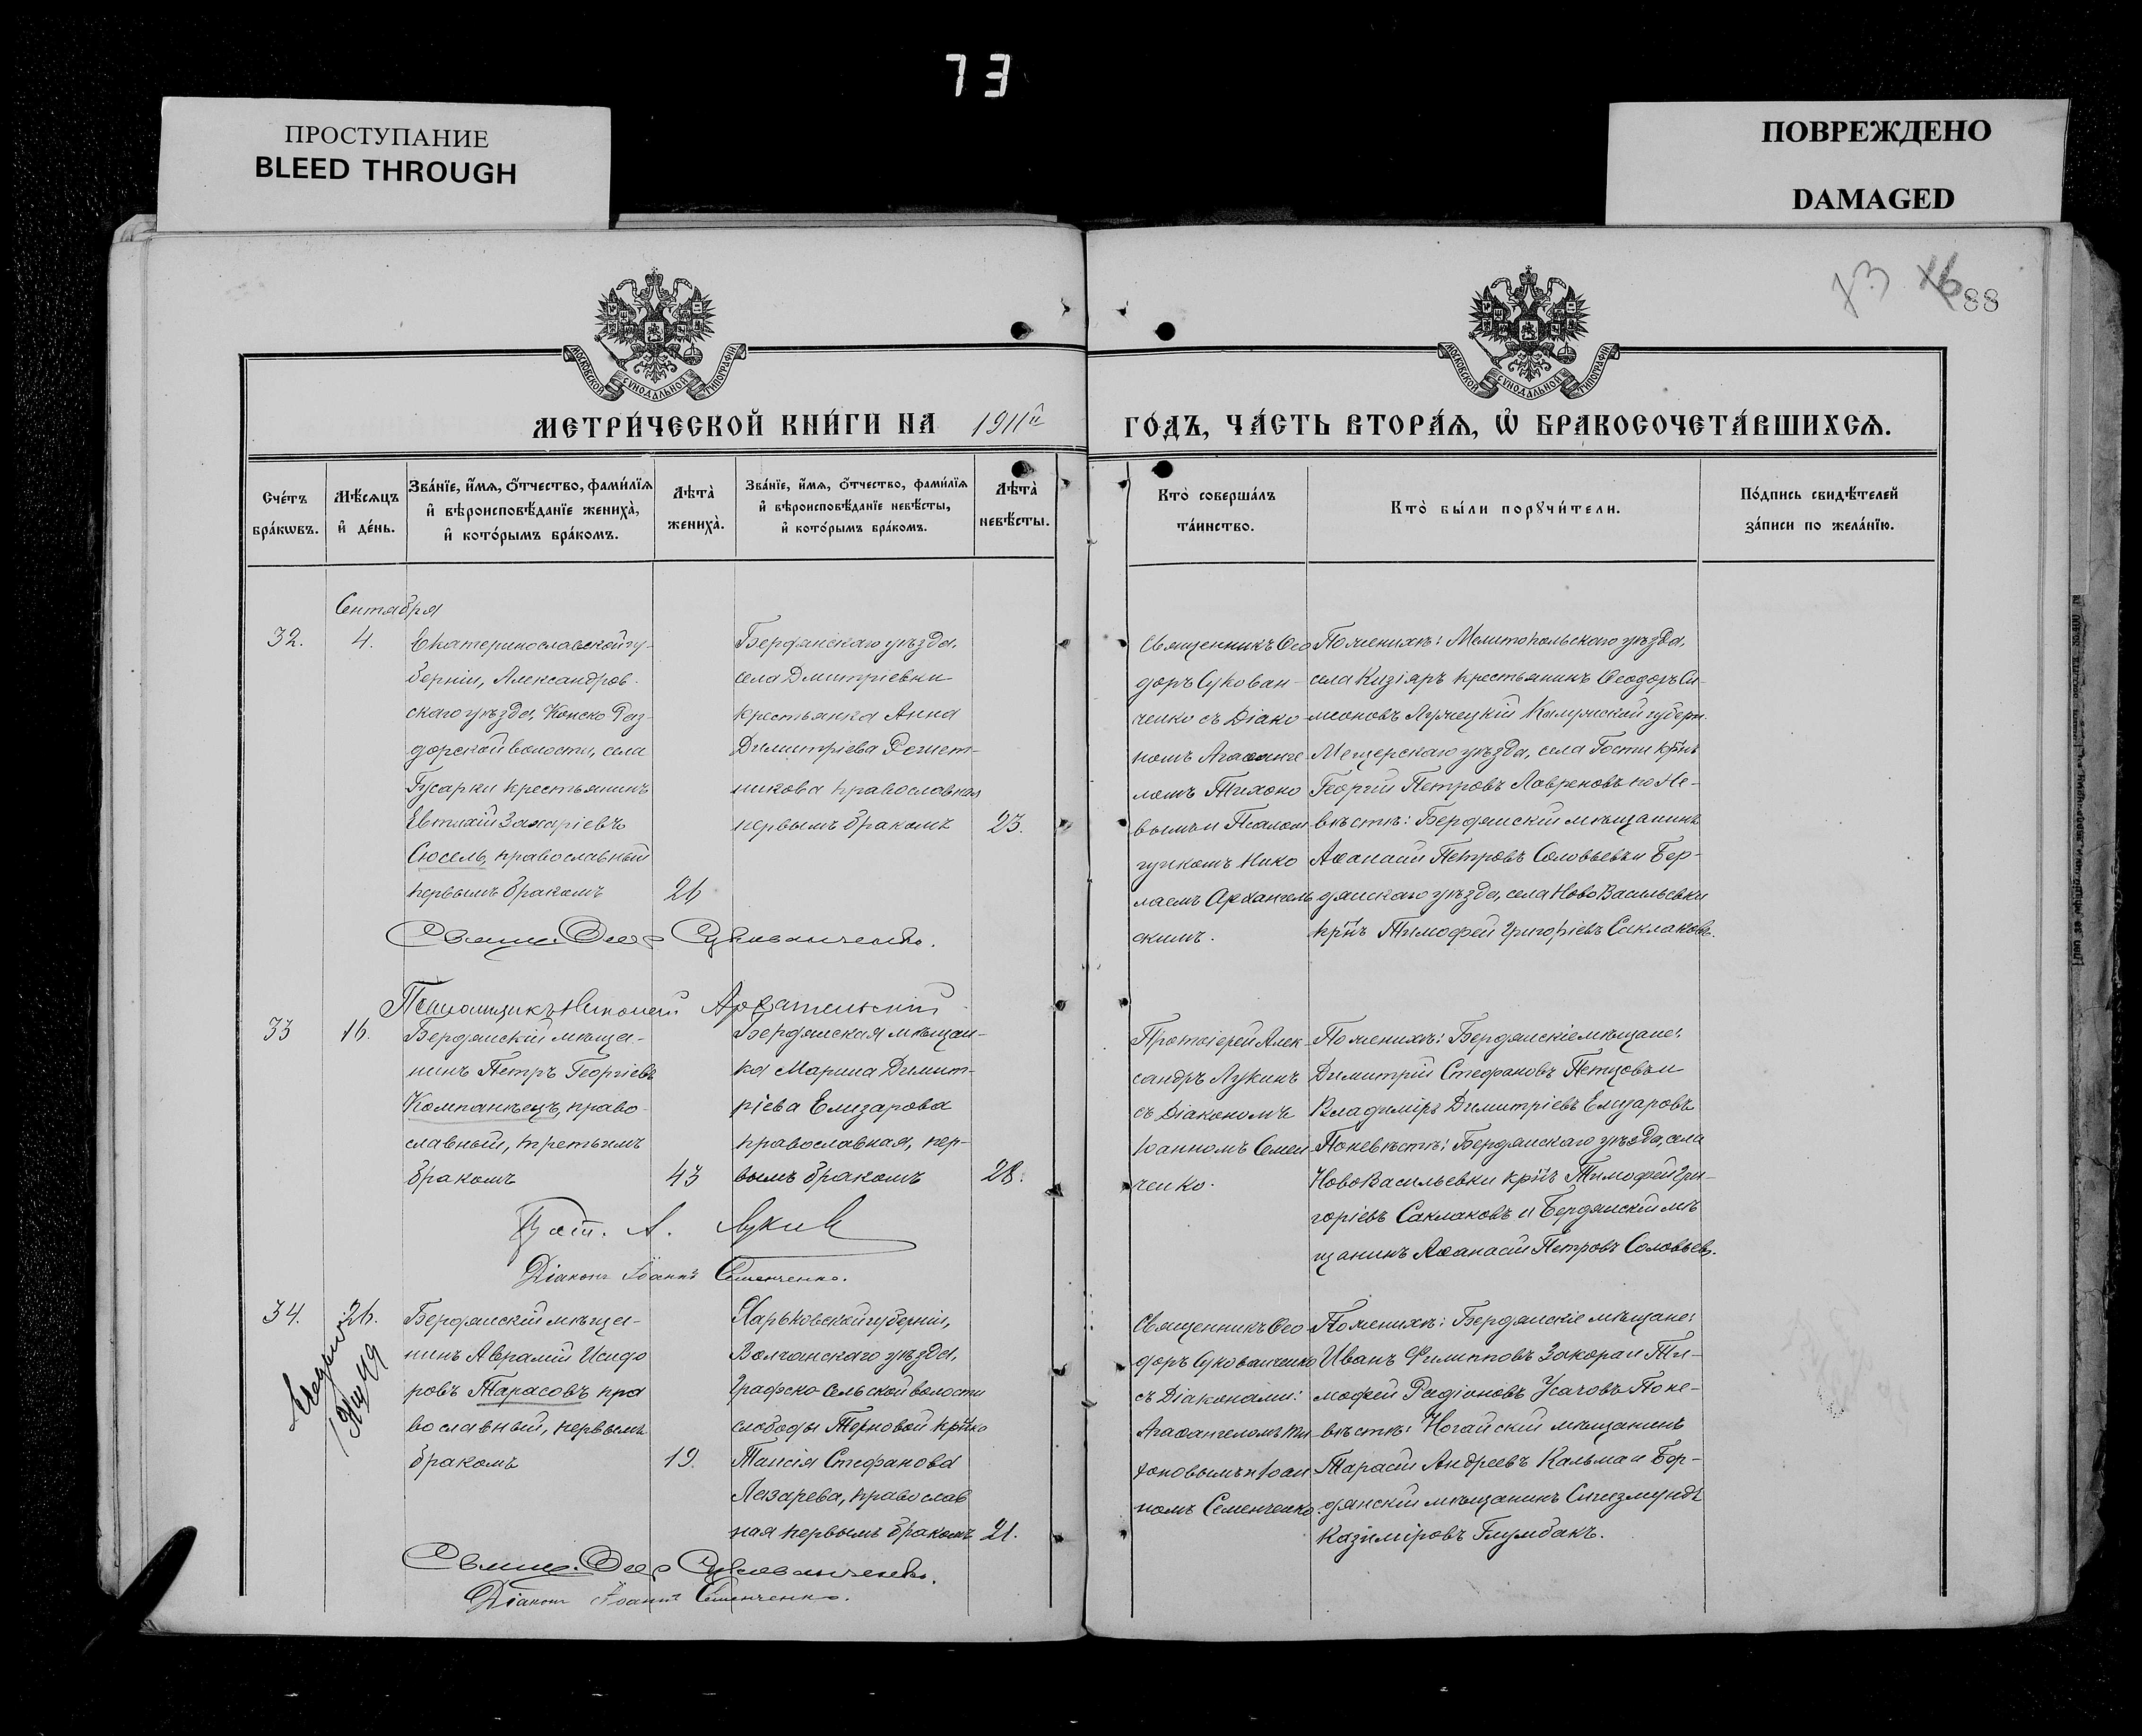 73
ПРОСТУПАНИЕ
BLEED THROUGH
ПОВРЕЖДЕНО
DAMAGED
73 16 88
МОСКОВСКОЙ СѴНОДАЛЬНОЙ ТИПОГРАФІИ
МОСКОВСКОЙ СѴНОДАЛЬНОЙ ТИПОГРАФІИ
МЕТРИ́ЧЕСКОЙ КНИ́ГИ НА 1911й ГО́ДЪ, ЧА́СТЬ ВТОРА́Ѧ, Ѡ҆ БРАКОСОЧЕТА́ВШИХСѦ.
Сче́тъ бра́кѡвъ.
Мѣ́сѧцъ и҆ де́нь.
Зва́нїе, и҆́мѧ, ѻ҆́тчество, фами́лїѧ и҆ вѣроисповѣ́данїе жениха̀, и҆ кото́рымъ бра́комъ.
Лѣта̀ жениха̀.
Зва́нїе, и҆́мѧ, ѻ҆́тчество, фами́лїѧ и҆ вѣроисповѣ́данїе невѣ́сты, и҆ кото́рымъ бра́комъ.
Лѣта̀ невѣ́сты.
Кто̀ соверша́лъ та́инство.
Кто̀ бы́ли порꙋчи́тели.
По́дпись свидѣ́телей за́писи по жела́нїю.
Сентября
32.
4.
Екатеринославской гу-
берніи, Александров-
скаго уѣзда, Конско Раз-
дорской волости, села
Гусарки крестьянинъ
Евтихій Захаріевъ
Сюсель, православный
первымъ бракомъ
26
Бердянскаго уѣзда,
села Дмитріевки
крестьянка Анна
Димитріева Решет-
никова православная
первымъ бракомъ
23.
Священникъ Ѳео
доръ Сукован-
ченко съ Діако-
номъ Агаѳанге
ломъ Тихоно
вымъ и Псалом
щикомъ Нико
лаемъ Архангель
скимъ.
По женихѣ: Мелитопольскаго уѣзда,
села Кизіяръ крестьянинъ Ѳеодоръ Си-
меоновъ Лучецкій Калужской губерн.
Мещерскаго уѣзда, села Гости кр̃нъ
Георгій Петровъ Лавреновъ по не-
вѣстѣ: Бердянскій мѣщанинъ
Аѳанасій Петровъ Соловьевъ и Бер-
дянскаго уѣзда, села НовоВасильевки
кр̃нъ Тимофей Григоріевъ Саклаковъ.
Свящ. Ѳеод Сукованченко.
Псаломщикъ Николай Архангельскій
33
16.
Бердянскій мѣща-
нинъ Петръ Георгіевъ
Компанѣецъ, право-
славный, третьимъ
бракомъ
43
Бердянская мѣщан-
ка Марина Димит-
ріева Елизарова
православная, пер-
вымъ бракомъ
28.
Протоіерей Алек-
сандръ Лукинъ
съ Діакономъ
Іоанномъ Семен
ченко.
По женихѣ: Бердянскіе мѣщане:
Димитрій Стефановъ Петцовъ и
Владиміръ Димитріевъ Елизаровъ
По невѣстѣ: Бердянскаго уѣзда, села
НовоВасильевки кр̃нъ Тимофей Гри-
горіевъ Саклаковъ и Бердянскій мѣ
щанинъ Аѳанасій Петровъ Соловьевъ.
Прот. А. Лукинъ
Діаконъ Іоаннъ Семенченко.
34.
26.
Бердянскій мѣща-
нинъ Аврамій Исидо
ровъ Тарасовъ пра
вославный, первымъ
бракомъ
19.
Харьковской губерніи,
Волчанскаго уѣзда,
Графско-Сельской волости
слободы Терновой кр̃нка
Таисія Стефанова
Лазарева, православ
ная первымъ бракомъ
21.
Священникъ Ѳео
доръ Сукованченко
съ Діаконами:
Агаѳангеломъ Ти
хоновымъ и Іоан
номъ Семенченко.
По женихѣ: Бердянскіе мѣщане:
Иванъ Филипповъ Закора и Ти-
мофей Радіоновъ Усачовъ По не-
вѣстѣ: Ногайскій мѣщанинъ
Тарасій Андреевъ Кальма и Бер-
дянскій мѣщанинъ Сигизмундъ
Казиміровъ Глумбакъ.
Свящ. Ѳеод Сукованченко.
Діаконъ Іоаннъ Семенченко.